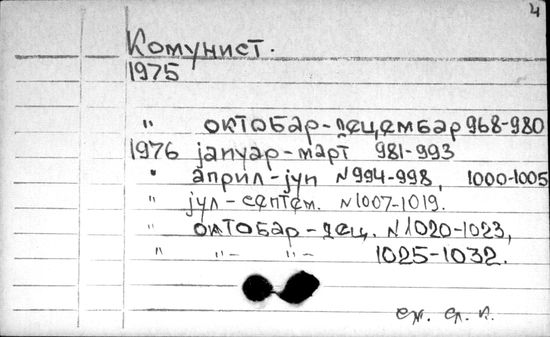 4
Комунист.
1975
" октобар-децембар 968-980
1976 јануар-март 981-993
" април-јун N994-998, 1000-1005
" јул-септем. N1007-1019.
" октобар-дец. N1020-1023,
" "- "- 1025-1032.
см. сл. к.